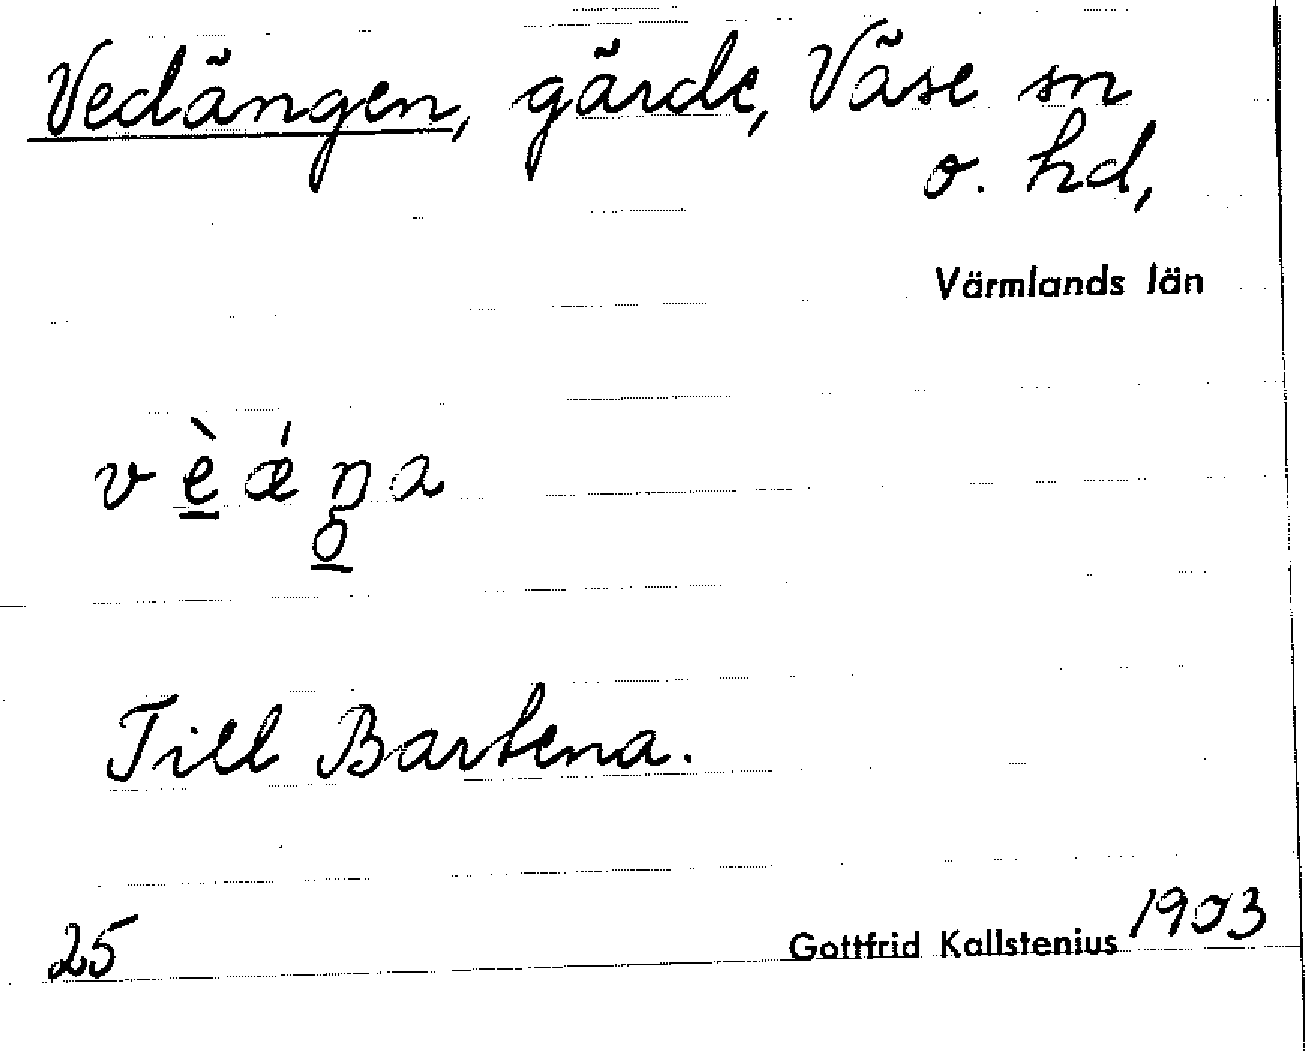 Vedängen, gärde, Väse sn
o. hd,
Värmlands län
vèǽŋa
Till Bartena.
25
Gottfrid Kallstenius 1903